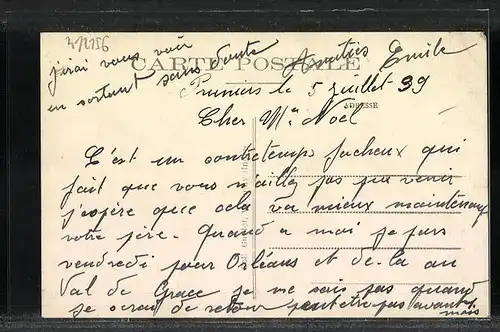 311156
j'irai vous voir
en sortant sans doute
CARTE POSTALE
Amitiés Emile
le 5 juillet 39
ADRESSE
Cher Mr Noel
C'est un contretemps facheux qui
fait que vous n'aillez pas pu venir
j'espère que cela va mieux maintenant
votre père. Quand a moi je pars
vendredi pour Orléans et de la au
Val de Grace je ne sais pas quand
je serai de retour peut etre pas avant 1
mois